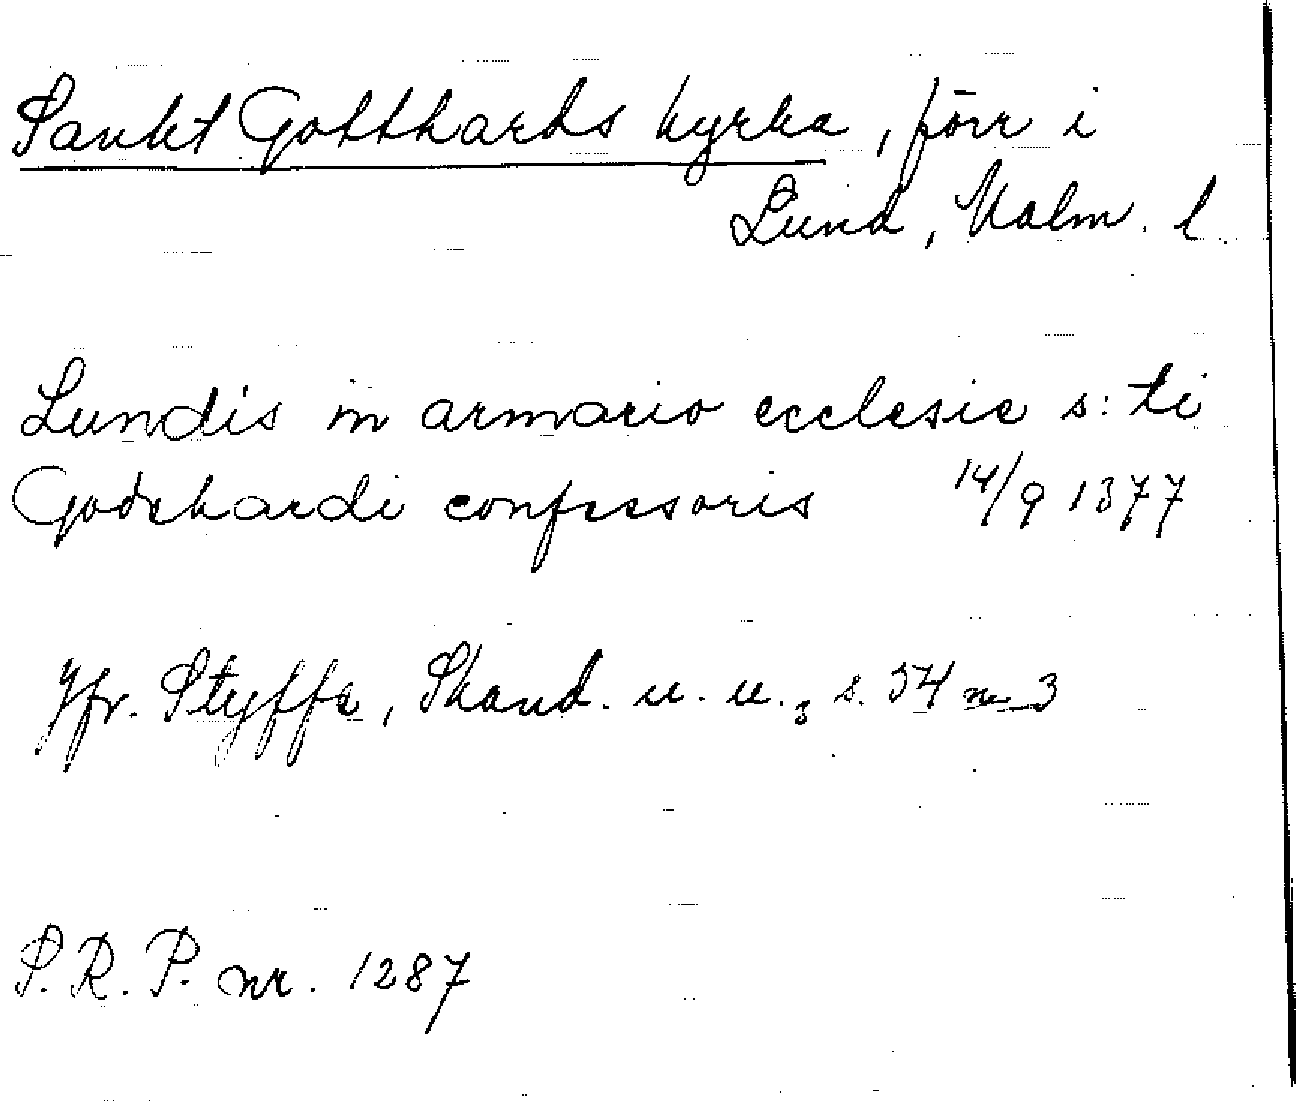 Sankt Gotthards kyrka, förr i
Lund, Malm. l.
Lundis in armario ecclesie s:ti
Godehardi confessoris 14/9 1377
Jfr. Styffe, Skand. u. u.3 s. 54 n 3
S.R.P. nr. 1287